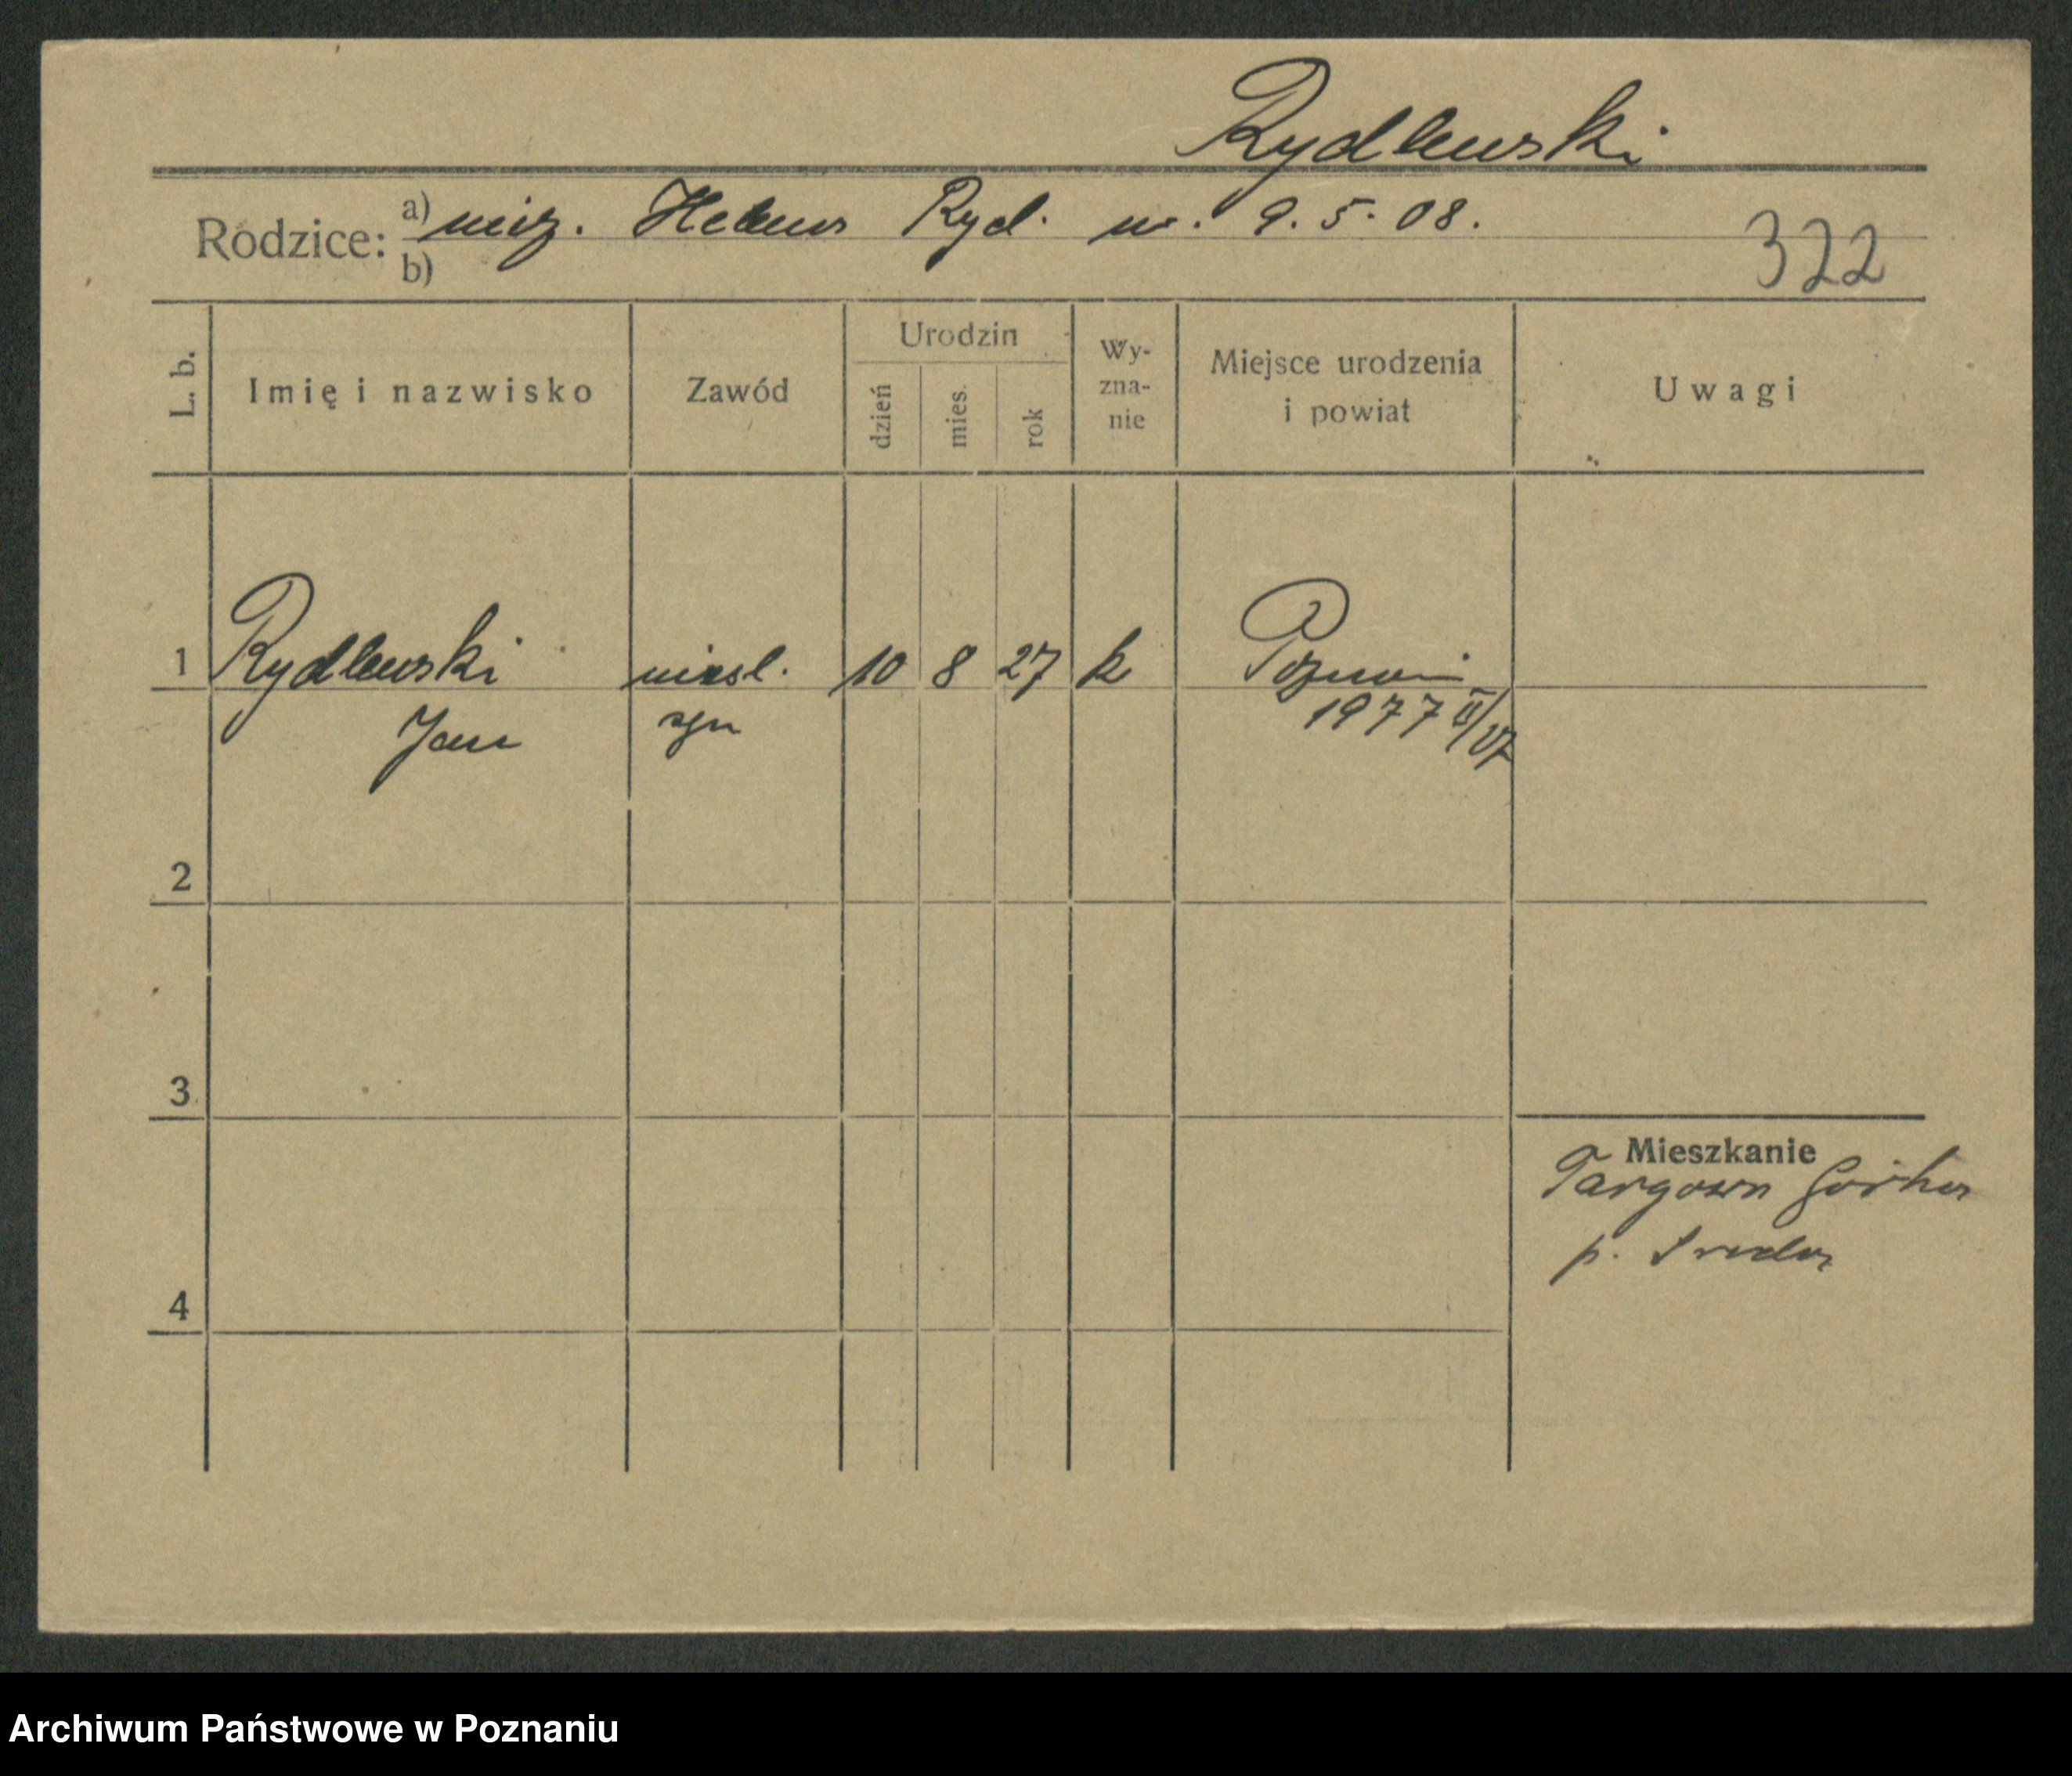 Rydlewski
Rodzice: a) niez. Helena Ryd. ur. 9. 5. 08.
b)
322
L. b. Imię i nazwisko Zawód Urodzin dzień mies. rok Wy-zna-nie Miejsce urodzenia i powiat Uwagi
1 Rydlewski nieśl. 10 8 27 k Poznań
Jan syn 1977 II/27
2
3
Mieszkanie
Targowa Górka
p. Środa
4
Archiwum Państwowe w Poznaniu